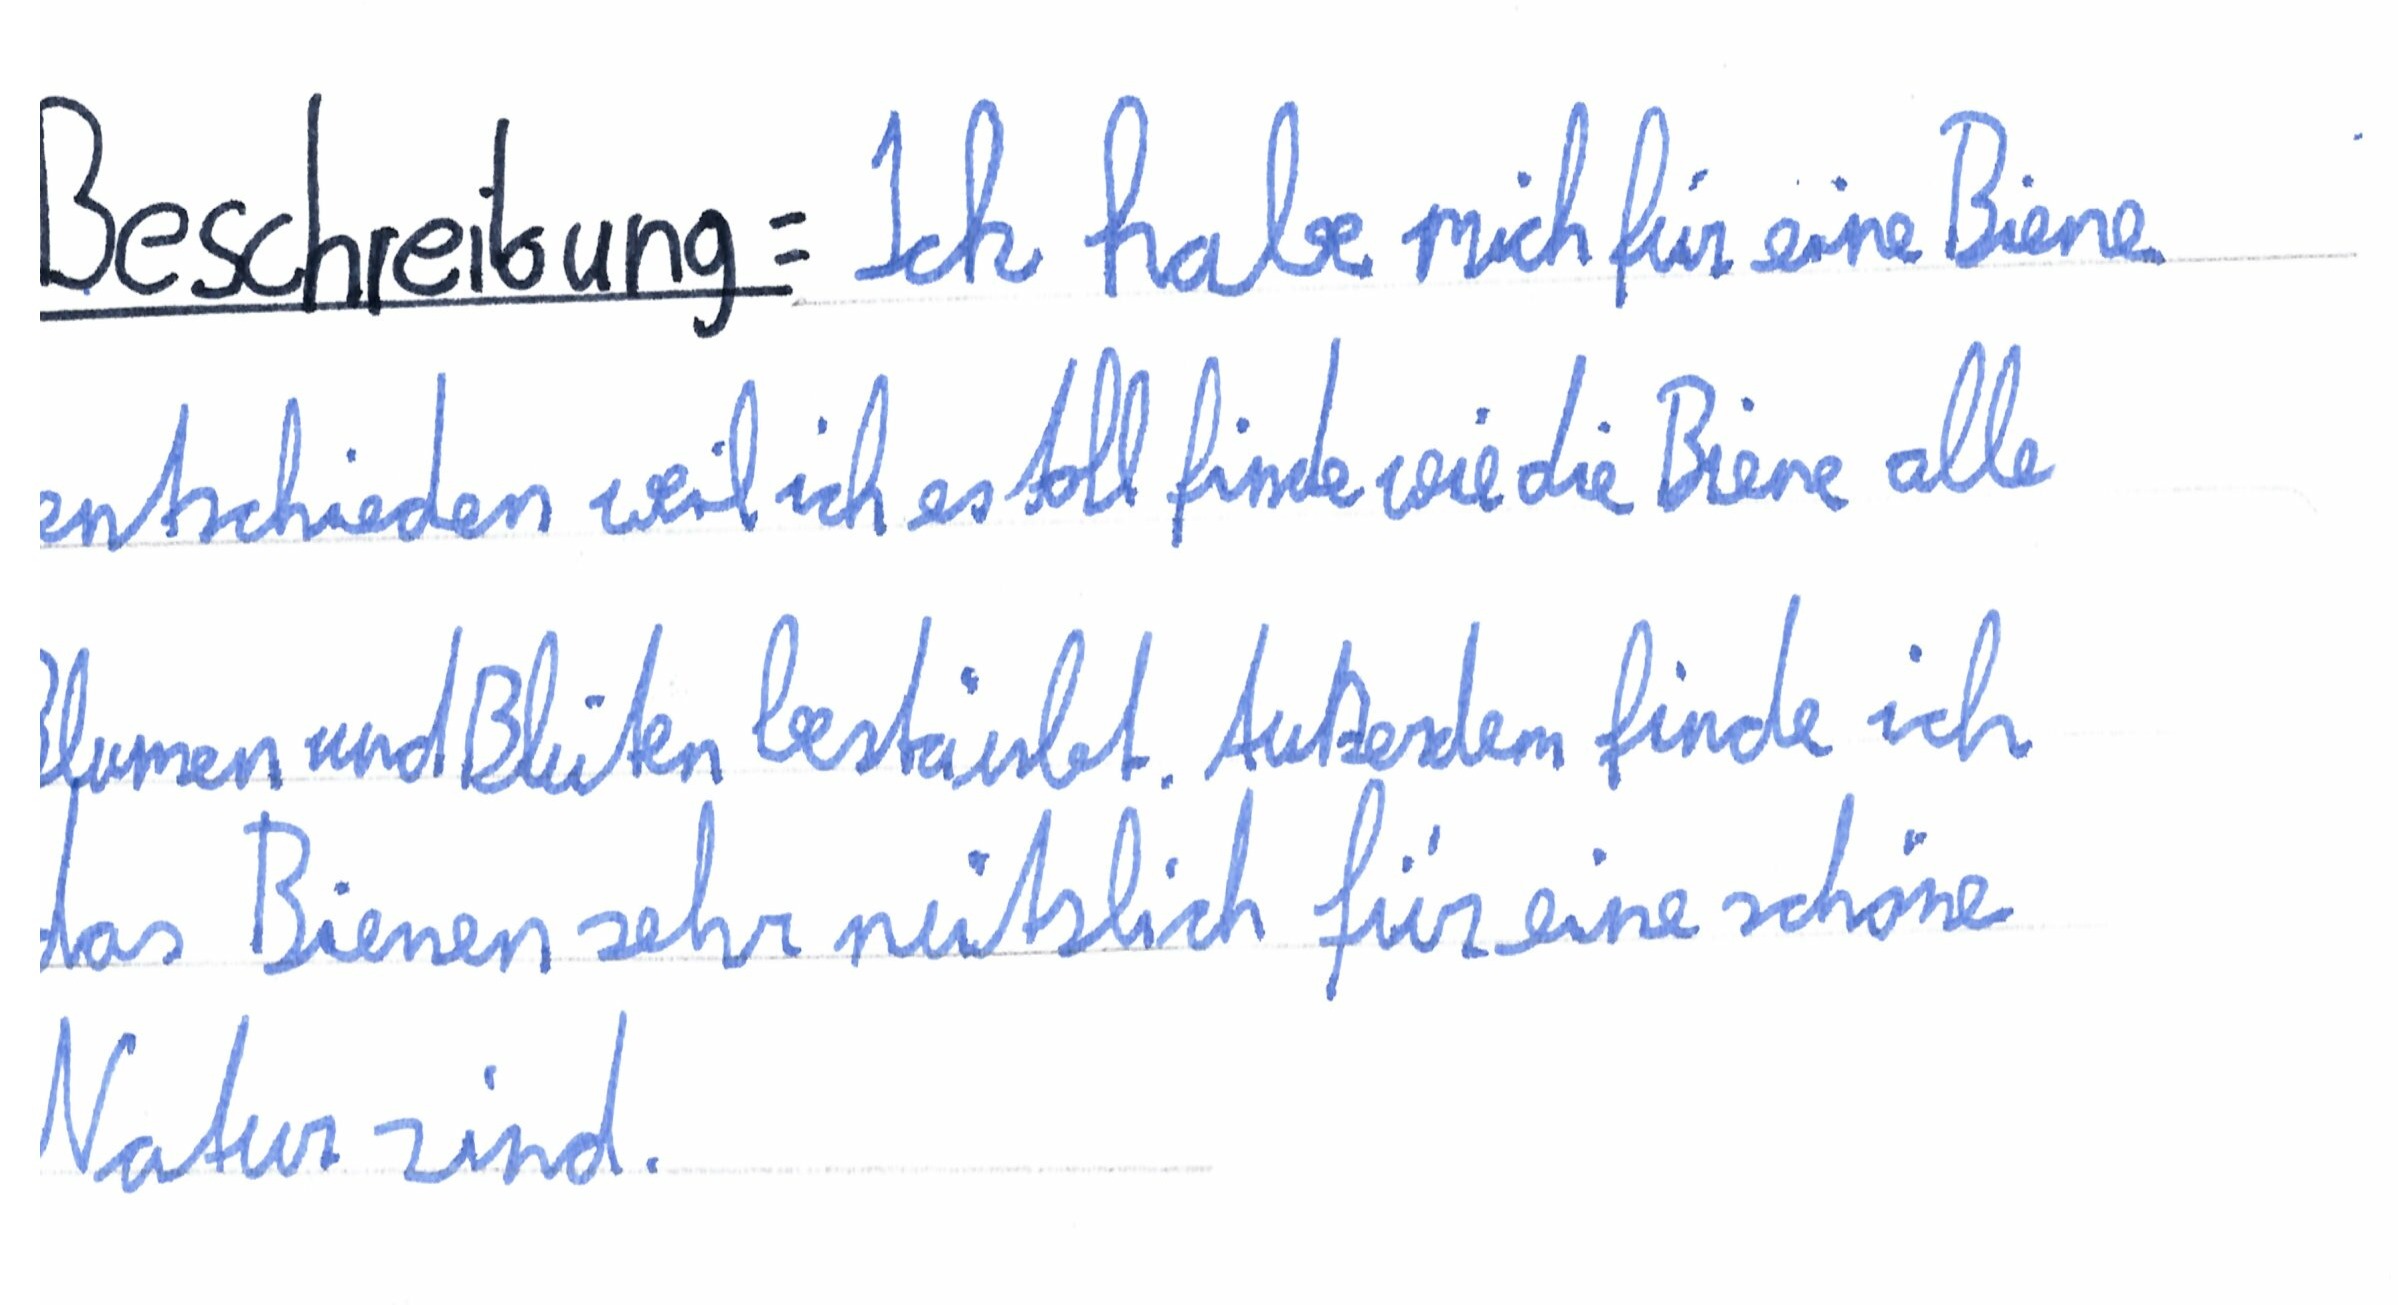 Beschreibung= Ich habe mich für eine Biene
entschieden weil ich es toll finde wie die Biene alle
Blumen und Blüten bestäubt. Außerdem finde ich
das Bienen sehr nützlich für eine schöne
Natur sind.